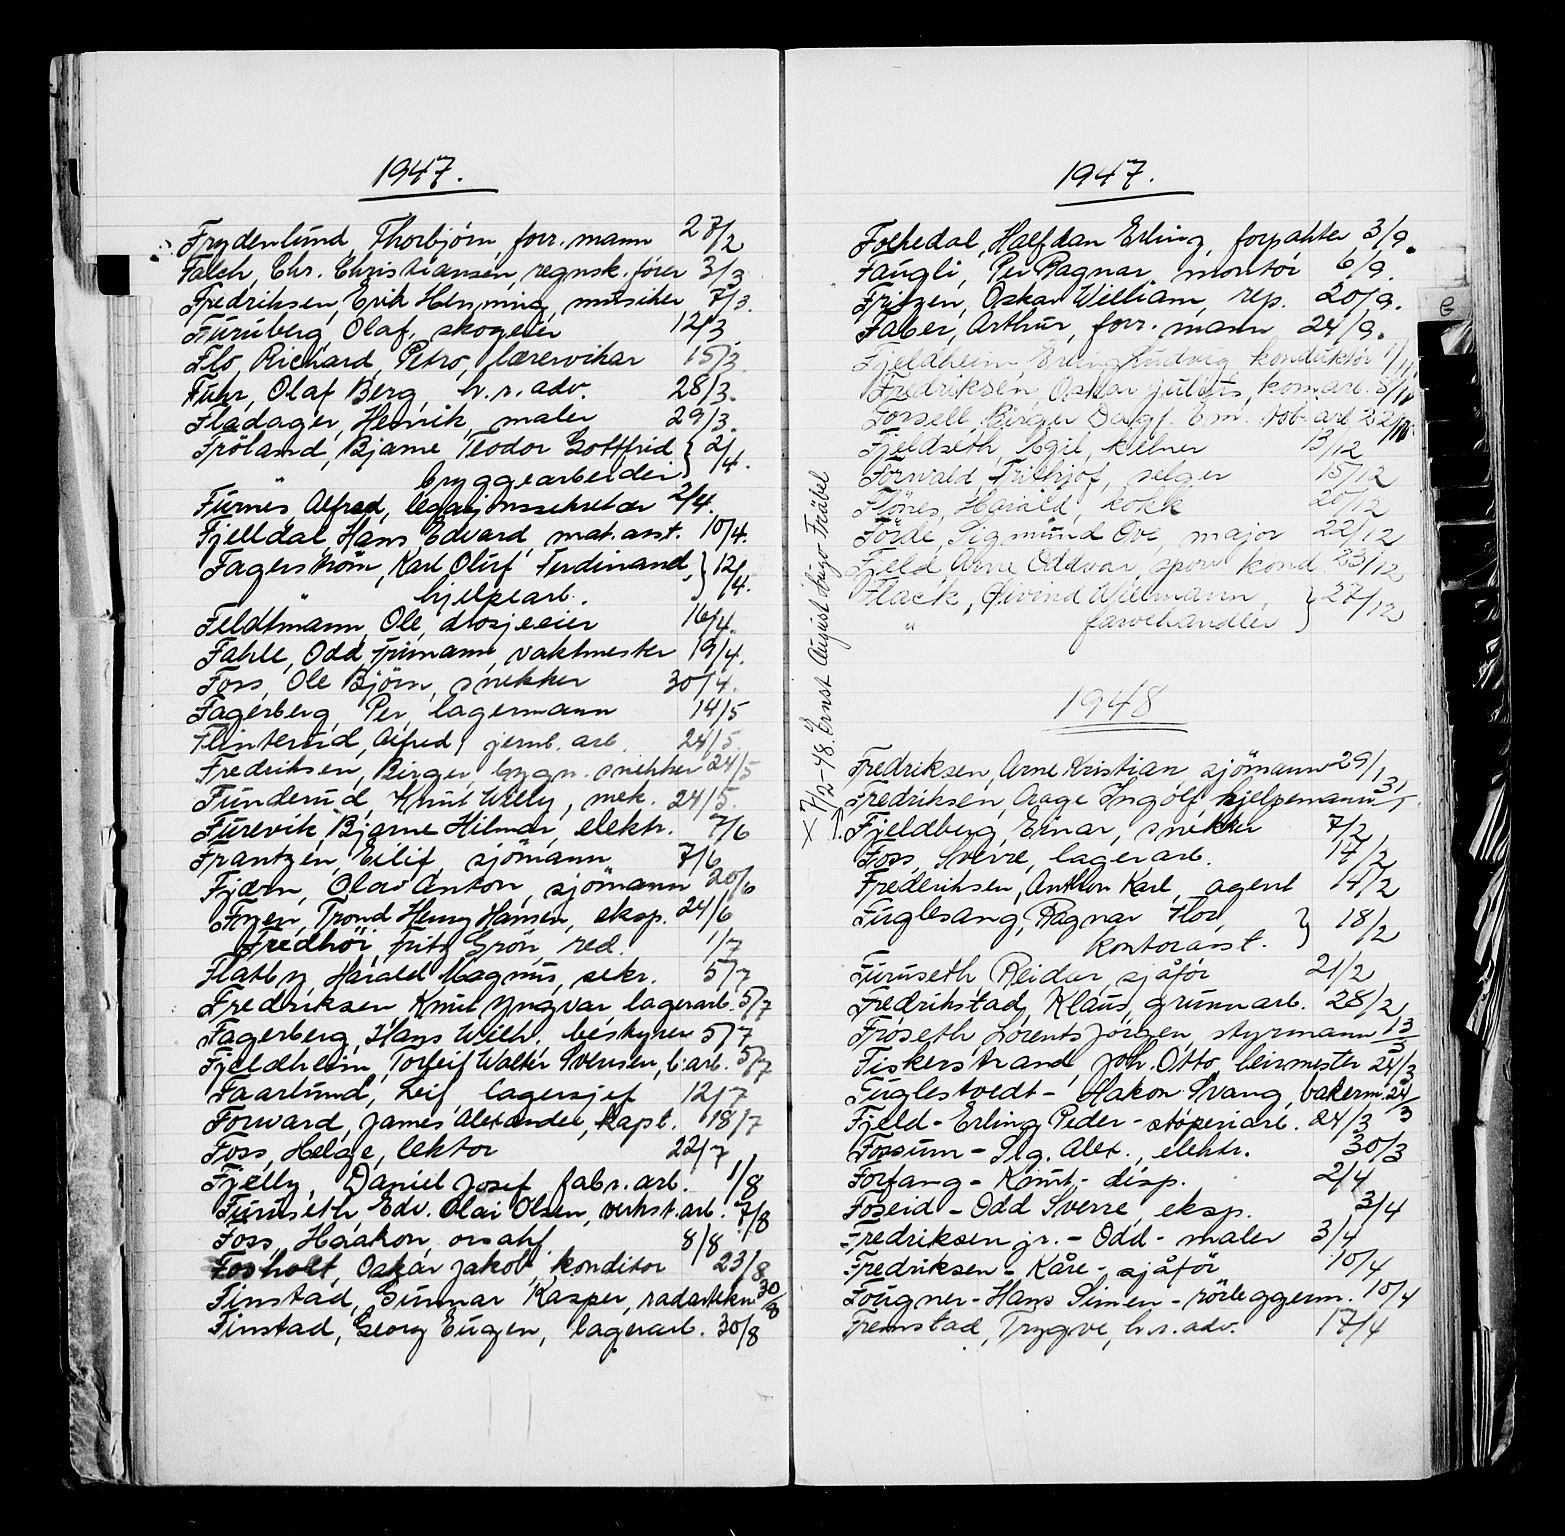 1947.
Frydenlund, Thorbjörn, forr. mann 27/2
Falch, Chr. Christiansen, regnsk. fører 3/3
Fredriksen, Erik Henning, musiker 7/3.
Furuberg, Olaf, skogeier 12/3
Flo, Richard, Petro, lærervikar 15/3.
Fuhr, Olaf Berg, h.r.adv. 28/3.
Fladager, Henrik, maler 29/3.
Fröland, Bjarne Teodor Gottfried } 2/4.
" bryggearbeider
Furnes Alfred, legasjonssekretær 2/4.
Fjelldal, Hans Edvard, mat.asst. 10/4.
Fagerström, Karl Oluf Ferdinand, } 12/4.
" hjelpearb.
Feldtmann, Ole, drosjeeier 16/4.
Fahle, Odd, vaktmester 19/4.
Foss, Ole Björn, snekker 30/4.
Fagerberg, Per, lagermann 14/5
Flinterud, Alfred, jernb. arb. 24/5
Fredriksen, Birger, bygn. snekker 24/5
Funderud, Knut Willy, mek. 24/5.
Furevik, Bjarne Hilmar, elektr. 7/6
Frantzen, Eilif, sjömann 7/6
Fjærn, Olav Anton, sjömann 20/6
Fryen, Trond Henry Hansen, eksp. 24/6
Fredhöi, Fritz Grön, red. 1/7
Flatby, Harald Magnus, sekr. 5/7
Fredriksen, Knut Yngvar, lagerarb. 5/7
Fagerberg, Hans Wilh. bestyrer 5/7
Fjeldheim, Torleif Walter Svensen, b.arb. 5/7
Faarlund, Leif lagersjef 12/7
Forward, James Alexander, kapt. 18/7
Foss, Helge, lektor 22/7
Fjelly, Daniel Josef fabr.arb. 1/8
Furuseth, Edv. Olai Olsen, verkst.arb. 7/8
Foss, Haakon, 8/8
Fosholt, Oskar Jakob, konditor 23/8
Finstad, Gunnar Kasper, radartekn. 30/8
Finstad, Georg Eugen, lagerarb. 30/8
1947.
Folkedal, Halfdan Erling, forpakter 3/9.
Faugli, Per Ragnar, montör 6/9.
Fritzen, Oskar William, rep. 20/9.
Faber, Arthur, forr. mann 24/9.
Fjeldheim, Erling Ludvig, konduktör 1/11
Fredriksen, Oskar Julius, kom.arb. 8/11
Forsell, Birger Dagf. Em. tob. arb. 22/11.
Fjeldseth, Egil, kelner 13/12
Forwald, Frithjof, selger 15/12
Flönes, Harald, kokk 20/12
Förde, Sigmund Ove, major 22/12
Fjeld, Arne Oddvar, sporv. kond. 23/12
Flack, Øivind Willmann, } 27/12
" farvehandler
1948
× 7/2-48. Ernst August Hugo Fräbel
Fredriksen, Arne Kristian sjömann 29/1
Fredriksen, Aage Ingolf hjelpemann 31/1
Fjeldberg, Einar, snekker 7/2
Foss, Sverre, lagerarb. 17/2
Frederiksen, Anthon Karl, agent 14/2
Fuglesang, Ragnar Flor, } 18/2
kontorasst.
Furuseth Reidar, sjåför 21/2
Fredrikstad, Klaus, grunnarb. 28/2
Fröseth, Lorents Jörgen, styrmann 13/3
Fiskerstrand, Joh. Otto, heismester 24/3
Fuglestvedt - Håkon Svang, bakerm. 24/3
Fjeld - Erling Peder - støperiarb. 24/3
Fossum - Sig. Alex., elektr. 30/3
Forfang - Knut - disp. 2/4
Foseid - Odd Sverre, eksp. 3/4
Fredriksen jr. - Odd - maler 3/4
Fredriksen - Kåre - sjåför 10/4
Fougner - Hans Simen - rörleggerm. 10/4
Fremstad, Trygve, h.r.adv. 17/4
G